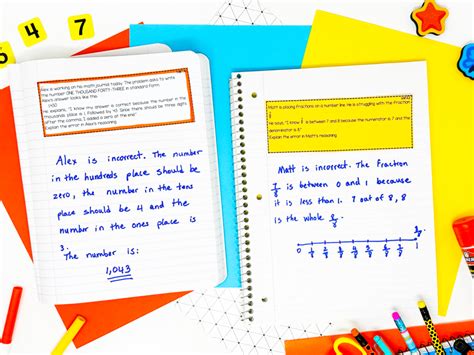 6 4 7
Alex is working on his math journal today. The problem asks to write
the number ONE THOUSAND FORTY-THREE in standard form.
Alex's answer looks like this:
He explains, "I know my answer is correct because the number in the
thousands place is 1 followed by
Since there should be three digits
after the comma, I added a zero at the end."
Explain the error in Alex's reasoning.
Alex is incorrect. The number
in the hundreds place should be
zero, the number in the tens
place should be 4 and the
number in the ones place is
3.
The number is:
1,043
Matt is placing fractions on a number line. He is struggling with the fraction
He says, "I know
is between 7 and 8 because the numerator is 7 and the
denominator is 8."
Explain the error in Matt's reasoning.
Matt is incorrect. The fraction
7/8 is between 0 and 1 because
it is less than 1. 7 out of 8, 8
is the whole 8/8.
0
1